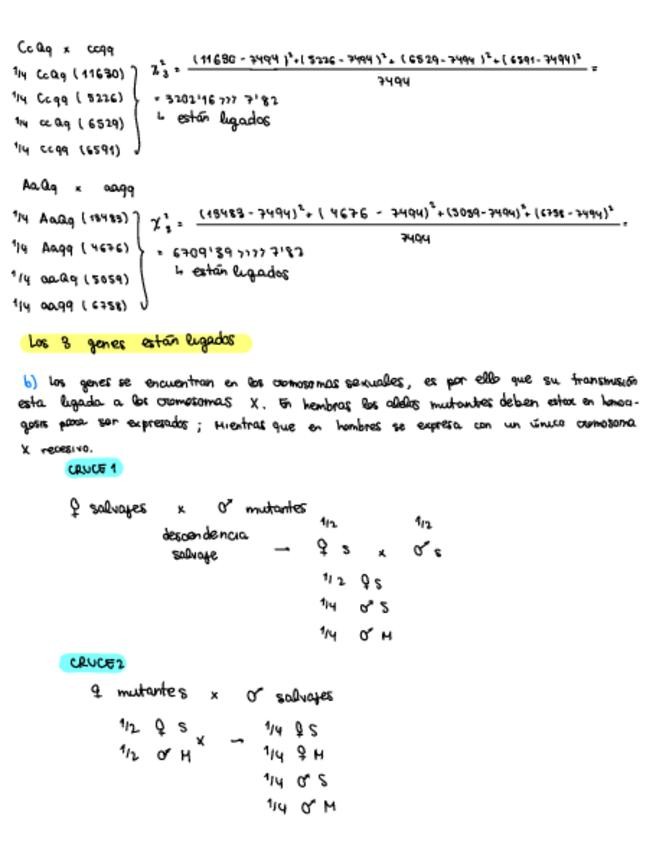 CcQq x ccqq
1/4 CcQq (11630)
1/4 Ccqq (5226)
1/4 ccQq (6529)
1/4 ccqq (6591)
χ²₃ = (11630 - 7494)² + (5226 - 7494)² + (6529 - 7494)² + (6591 - 7494)² / 7494 =
= 3202'16 >>> 7'82
↳ están ligados
AaQq x aaqq
1/4 AaQq (13483)
1/4 Aaqq (4676)
1/4 aaQq (5059)
1/4 aaqq (6758)
χ²₃ = (13483 - 7494)² + (4676 - 7494)² + (5059 - 7494)² + (6758 - 7494)² / 7494 =
= 6709'39 >>>> 7'82
↳ están ligados
Los 3 genes están ligados
b) Los genes se encuentran en los cromosomas sexuales, es por ello que su transmisión
esta ligada a los cromosomas X. En hembras los alelos mutantes deben estar en homoci-
gosis para ser expresados; Mientras que en hombres se expresa con un único cromosoma
X recesivo.
CRUCE 1
♀ salvajes x ♂ mutantes
descendencia salvaje → 1/2 ♀ S x 1/2 ♂ S
1/2 ♀ S
1/4 ♂ S
1/4 ♂ M
CRUCE 2
♀ mutantes x ♂ salvajes
1/2 ♀ S x 1/2 ♂ M →
1/4 ♀ S
1/4 ♀ M
1/4 ♂ S
1/4 ♂ M